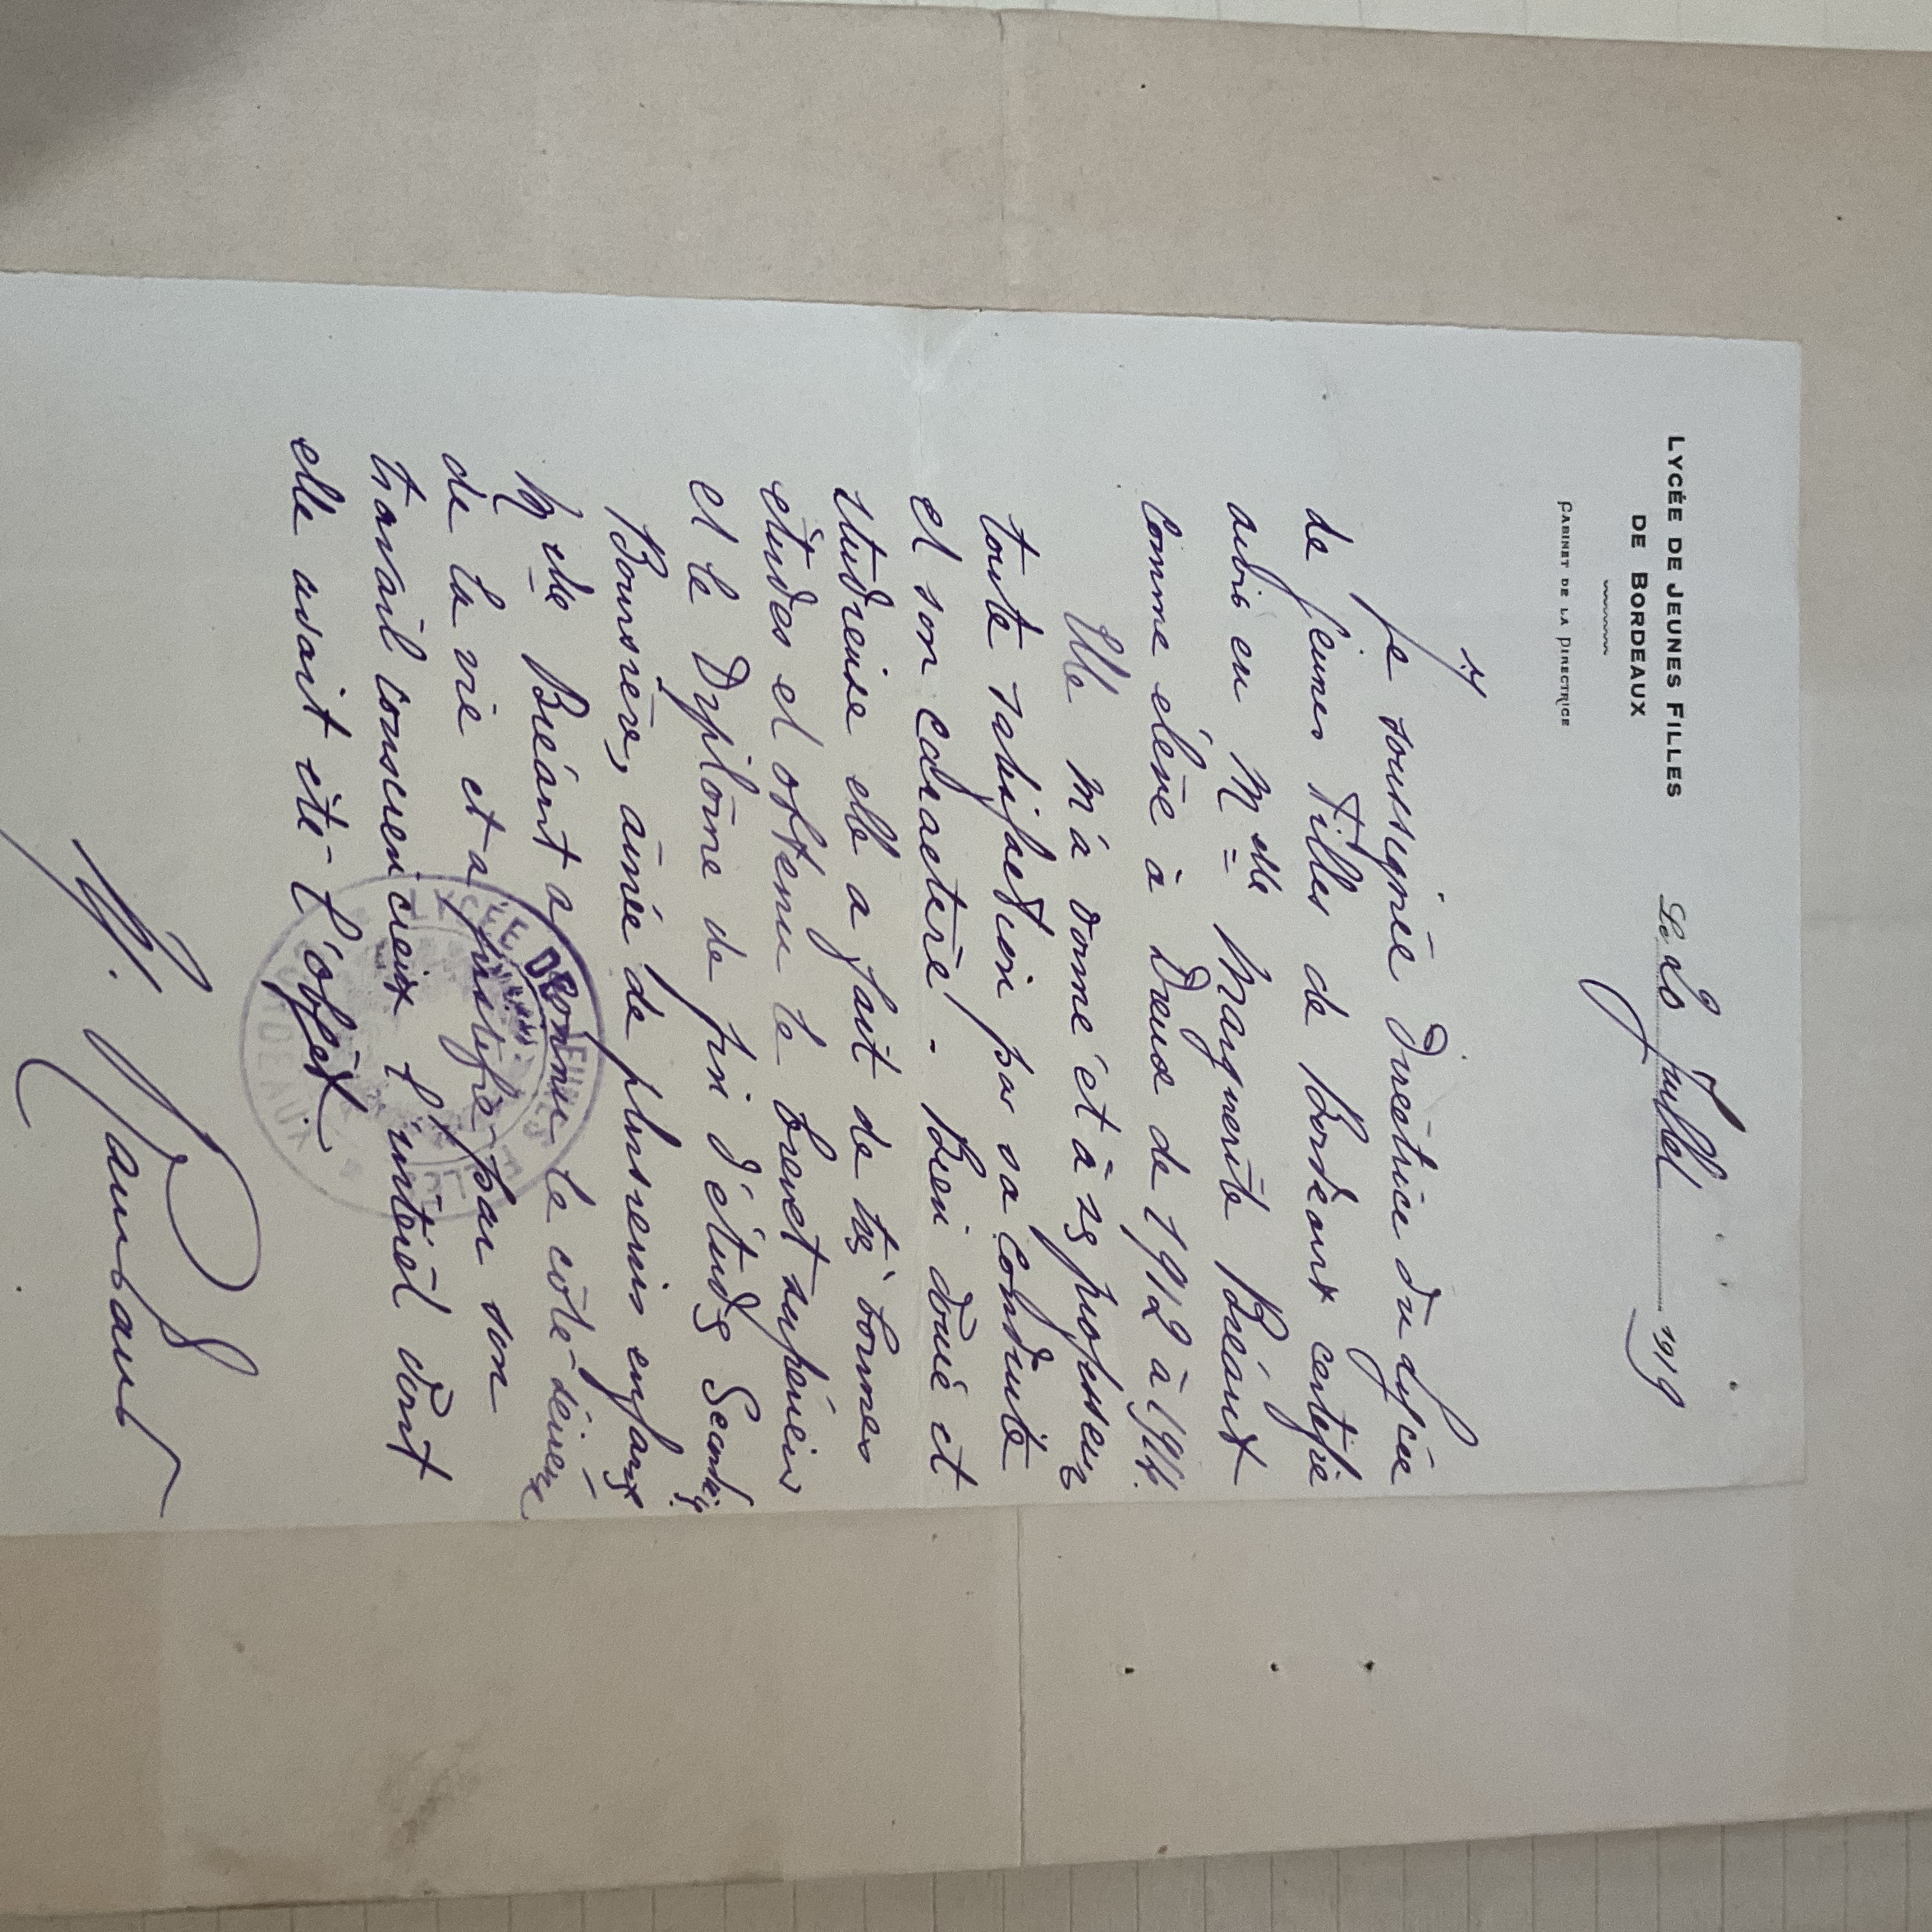 LYCÉE DE JEUNES FILLES
DE BORDEAUX
CABINET DE LA DIRECTRICE
Le 20 Juillet 1919
Je soussignée Directrice du Lycée
de Jeunes Filles de Bordeaux certifie
avoir eu Melle Marguerite Bréant
comme élève à Dreux de 1912 à 1914.
Elle m'a donné et à ses professeurs
toute satisfaction par sa conduite
et son caractère. Bien douée et
studieuse elle a fait de très bonnes
études et obtenu le brevet supérieur
et le Diplôme de fin d'études Secondres
Boursière, aînée de plusieurs enfants
Melle Bréant a connu le côté sérieux
de la vie et a justifié par son
travail consciencieux l'intérêt dont
elle avait été l'objet.
LYCÉE DE JEUNES FILLES
BORDEAUX